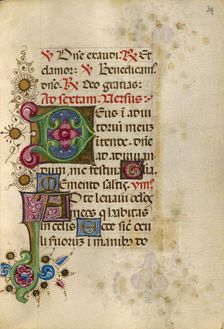 39
℣ Dñe exaudi. ℟ Et
clamor. ℣ Benedicam̃.
dño. ℟ Deo gratias:
Ad sextam. Versus:
Deus i adiu
toriu meuʒ
intende. Dñe
ad adiuuan
dum me festina. Glia.
Memento salutis. ymˢ.
Ad te leuaui oculos
meos q habitas
in celis. Ecce sic
oculi seruorum i manibꝰ do